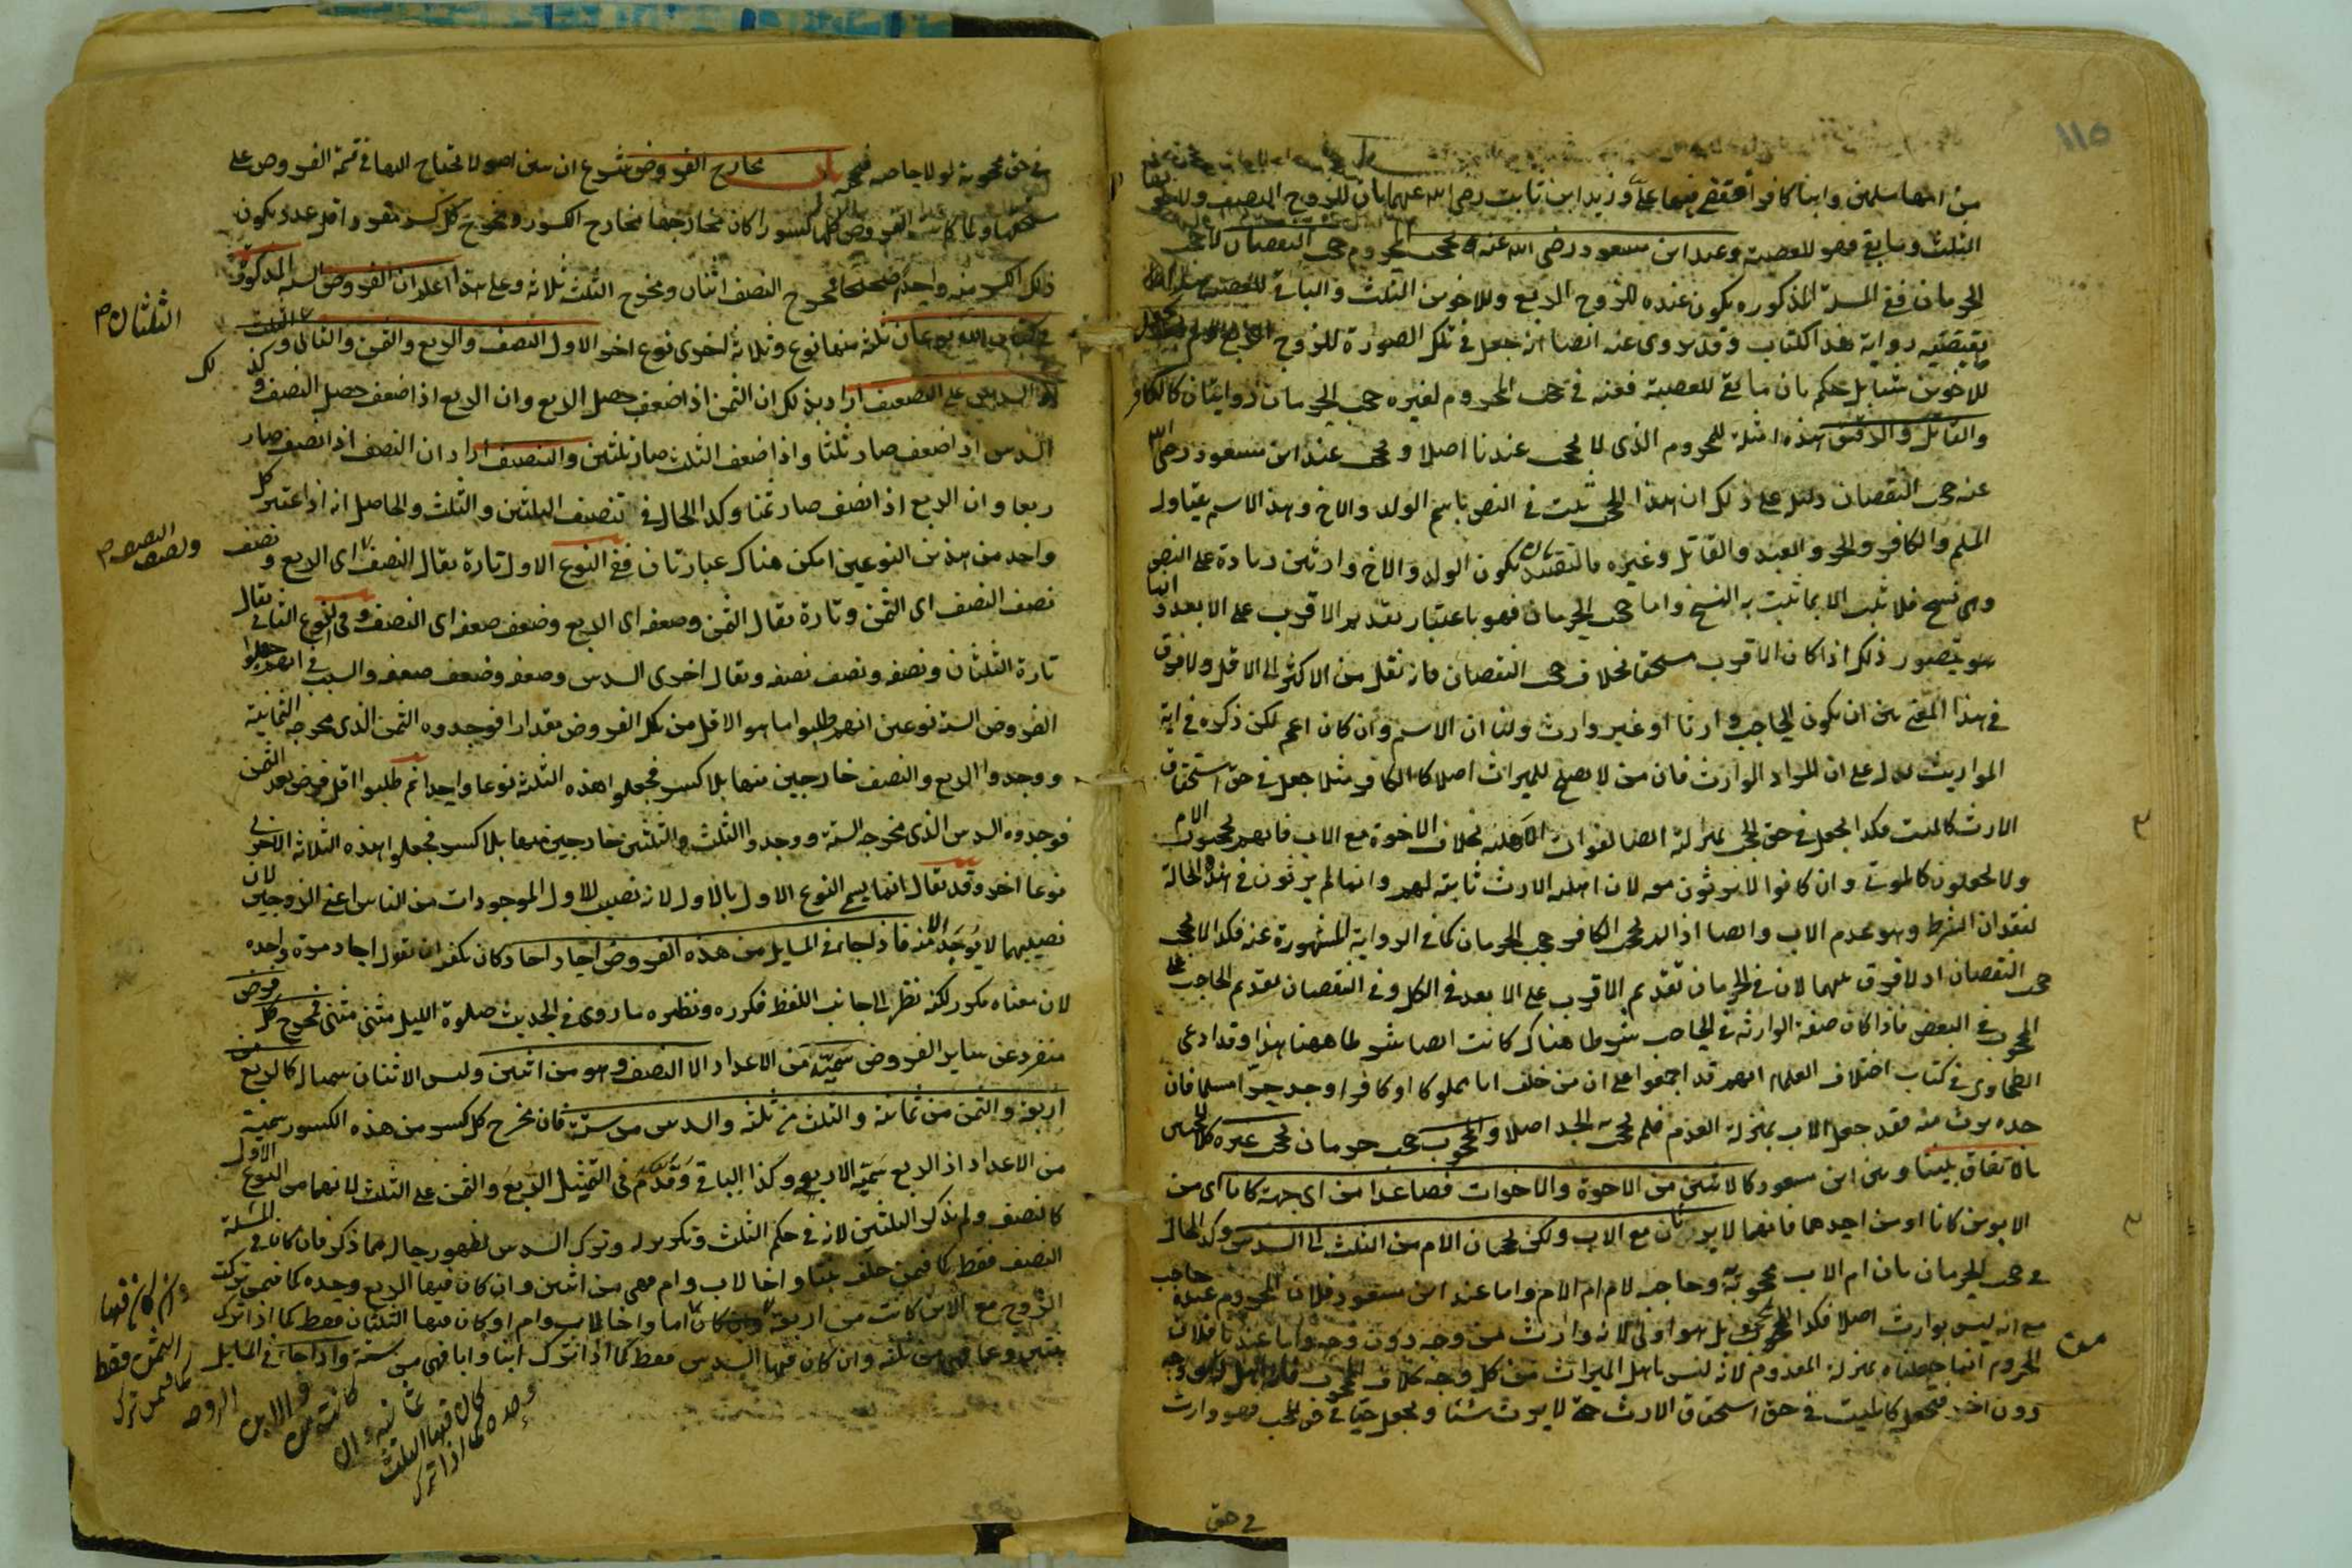 ١١٥
من امها مسلمين وابنا كافرا فقضى فيها على وزيد ابن ثابت رضى الله عنهما بان للزوج النصف وللاخوين
الثلث وما بقى فهو للعصبة وعند ابن مسعود رضى الله عنه يحجب المحروم حجب النقصان لا حجب
الحرمان ففى المسئلة المذكوره يكون عنده للزوج الربع وللاخوين الثلث والباقى للعصبة
يقتضيه رواية هذا الكتاب وقد روى عنه ايضا انه جعل فى تلك الصورة للزوج الربع
للاخوين شيا بل حكم بان ما بقى للعصبة فعنه فى حجب المحروم لغيره حجب الحرمان روايتان كالكافر
والقاتل والرقيق هذه امثلة للمحروم الذى لا يحجب عندنا اصلا ويحجب عند ابن مسعود رضى الله
عنه حجب النقصان دليله على ذلك ان هذا الحجب ثبت فى النص باسم الولد والاخ وهذا الاسم يتناول
المسلم والكافر والحر والعبد والقاتل وغيره فالتقييد بكون الولد والاخ وارثين زيادة على النص
وهى نسخ فلا تثبت الا بما ثبت به النسخ واما حجب الحرمان فهو باعتبار تقديم الاقرب على الابعد وانما
يتصور ذلك اذا كان الاقرب مستحقا بخلاف حجب النقصان فانه نقل من الاكثر الى الاقل ولا فرق
فى هذا المعنى بين ان يكون الحاجب وارثا او غير وارث ولنا ان الاسم وان كان اعم لكن ذكره فى اية
المواريث يدل على ان المراد الوارث فان من لا يصلح للميراث اصلا كالكافر مثلا جعل فى حق استحقاق
الارث كالميت فكذا يجعل فى حق الحجب بمنزلته ايضا لفوات الاهلية بخلاف الاخوة مع الاب فانهم يحجبون الام
ولا يجعلون كالموتى وان كانوا لا يرثون معه لان اهلية الارث ثابتة لهم وانما لم يرثون فى هذه الحالة
لفقدان الشرط وهو عدم الاب وايضا اذا لم يحجب الكافر حجب الحرمان كما فى الرواية المشهورة عنه فكذا لا يحجب
حجب النقصان اذ لا فرق بينهما لان فى الحرمان تقديم الاقرب على الابعد فى الكل وفى النقصان تقديم الحاجب على
المحجوب فى البعض فاذا كان صفة الوارثة فى الحاجب شرطا هناك كانت ايضا شرطا ههنا هذا وقد ادعى
الطحاوى فى كتاب اختلاف العلماء انهم قد اجمعوا على ان من خلف ابا مملوكا او كافرا وجد حرا مسلما فان
جده يرث منه فقد جعل الاب بمنزلة العدم فلم يحجب به الجد اصلا والمحجوب حجب حرمان يحجب غيره كالحجبين
بالاتفاق بيننا وبين ابن مسعود كالاثنين من الاخوة والاخوات فصاعدا من اى جهة كانا اى من
الابوين كانا او من احدهما فانهما لا يرثان مع الاب ولكن يحجبان الام من الثلث الى السدس وكذا الحال
فى حجب الحرمان بان ام الاب محجوبة وحاجبة لام ام الام واما عند ابن مسعود فلان المحروم عنده حاجب
مع انه ليس بوارث اصلا فكذا المحجوب بل هو اولى لانه وارث من وجه دون وجه واما عندنا فلان
المحروم انما جعلناه بمنزلة المعدوم لانه ليس باهل الميراث من كل وجه بخلاف المحجوب فانه اهل من وجه
دون اخر فيجعل كالميت فى حق استحقاق الارث حتى لا يرث شيئا ويجعل حيا فى حق الحجب فهو وارث
فى حق
فى حق محجوبه لولا حاجبه فيحجبه باب مخارج الفروض شرع ان يبين اصولا يحتاج اليها فى قسمة الفروض على
مستحقيها ولما كانت الفروض كلها كسورا كان مخارجها مخارج الكسور ومخرج كل كسر مفرد اقل عدد يكون
ذلك الكسر منه واحدا صحيحا فمخرج النصف اثنان ومخرج الثلث ثلاثة وعلى هذا اعلم ان الفروض الستة المذكورة
فى كتاب الله نوعان ثلثة منها نوع وثلاثة اخرى نوع اخر الاول النصف والربع والثمن والثانى الثلث
والسدس على التضعيف اراد بذلك ان الثمن اذا ضعف حصل الربع وان الربع اذا ضعف حصل النصف وكذلك
الثلثان
السدس اذا ضعف صار ثلثا واذا ضعف الثلث صار ثلثين والتنصيف اراد ان النصف اذا نصف صار
ربعا وان الربع اذا نصف صار ثمنا وكذا الحال فى تنصيف الثلثين والثلث والحاصل انه اذا اعتبر كل
واحد من هذين النوعين امكن هناك عبارتان ففى النوع الاول تارة يقال النصف اى الربع ونصف
ونصف النصف
نصف النصف اى الثمن وتارة يقال الثمن وضعفه اى الربع وضعف ضعفه اى النصف وفى النوع الثانى يقال
تارة الثلثان ونصفه ونصف نصفه ويقال اخرى السدس وضعفه وضعف ضعفه والسبب فى انهم جعلوا
الفروض الستة نوعين انهم طلبوا ما هو الاقل من تلك الفروض مقدارا فوجدوه الثمن الذى مخرجه الثمانية
ووجدوا الربع والنصف خارجين منها بلا كسر فجعلوا هذه الثلثة نوعا واحدا ثم طلبوا اقل فرض بعد الثمن
فوجدوه السدس الذى مخرجه الستة ووجدوا الثلث والثلثين خارجين منها بلا كسر فجعلوا هذه الثلاثة الاخرى
نوعا اخر وقد يقال انما سمى النوع الاول بالاول لانه نصيب للاول الموجودات من الناس اعنى الزوجين لان
نصيبهما لا يوجد الا منه فاذا جاء فى المسايل من هذه الفروض احاد احاد كان يكفى ان يقول احاد مرة واحدة
لان معناه مكرر لكنه نظر الى جانب اللفظ فكرره ونظيره ما روى فى الحديث صلوة الليل مثنى مثنى فمخرج كل فرض
منفرد عن ساير الفروض سميّه من الاعداد الا النصف وهو من اثنين وليس الاثنان سميا له كالربع من
اربعة والثمن من ثمانية والثلث من ثلثة والسدس من ستة فان مخرج كل كسر من هذه الكسور سميه
من الاعداد اذ الربع سمّيه الاربعة وكذا الباقى وقدّم فى التمثيل الربع والثمن على الثلث لانهما من النوع الاول
كالنصف ولم يذكر الثلثين لانه فى حكم الثلث وتكريره وترك السدس لظهور حاله مما ذكر فان كان فى المسئلة
النصف فقط كما فيمن خلف بنتا واخا لاب وام فهى من اثنين وان كان فيها الربع وحده كما فيمن تركت
الزوج مع الابن كانت من اربعة اما واخا لاب وام او كان فيها الثلثان فقط كما اذا ترك
بنتين وعما فهى من ثلثة وان كان فيها السدس فقط كما اذا ترك ابنا وابا فهى من ستة واذا جاء فى المسايل
وان كان فيها
الثمن فقط
كما فيمن ترك
الزوجة
والابن
كانت من
ثمانية وان
كان فيها الثلث
وحده كما اذا ترك